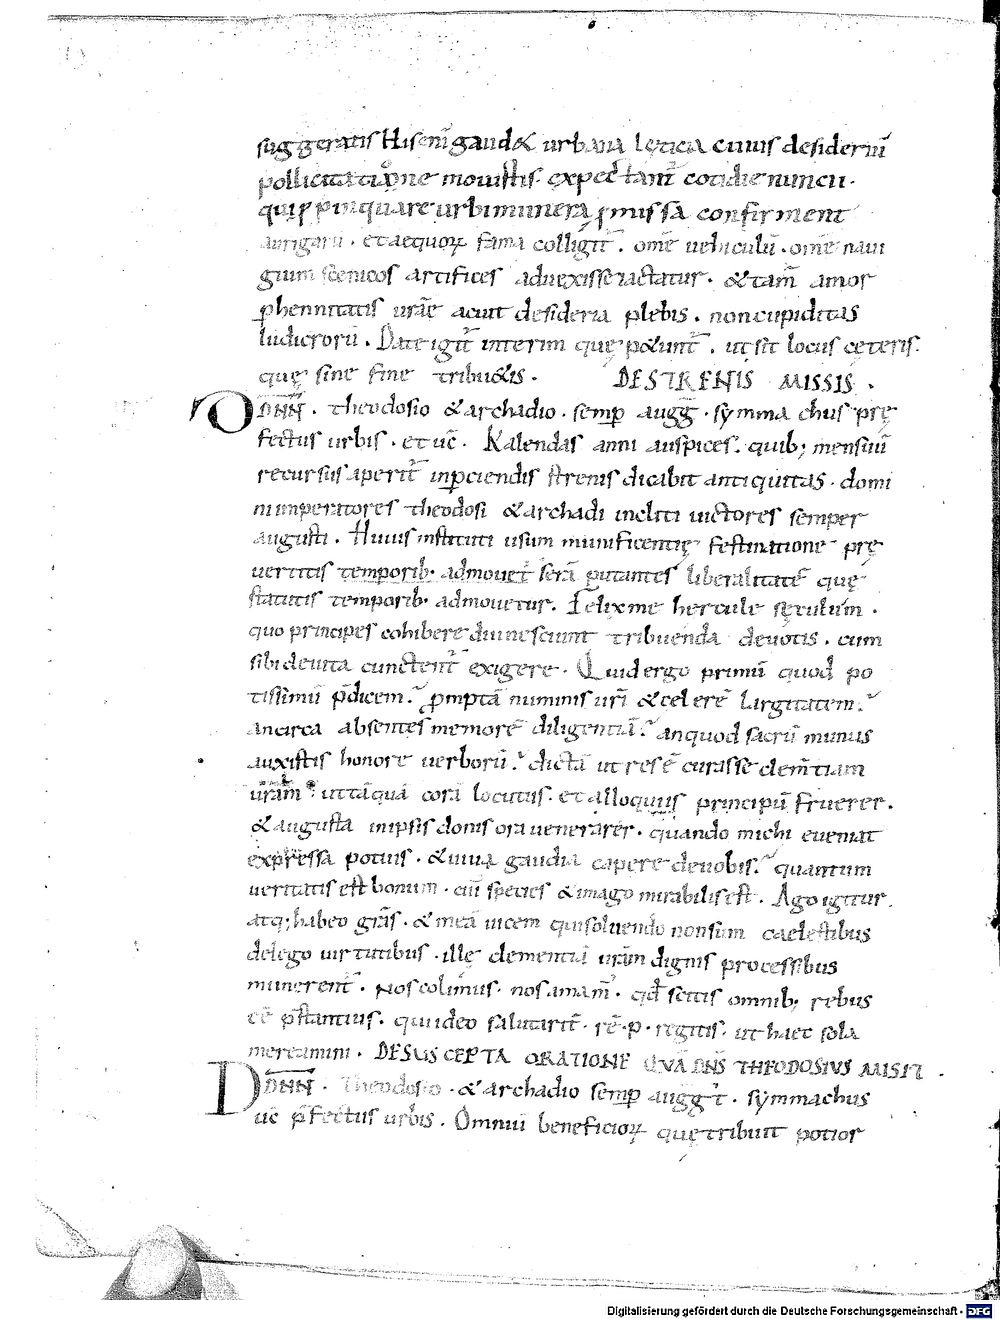 suggeratis His eni͂ gaud& urbana lęticia cuius desideriu͂
pollicitatione mouistis· expectant͂ cotidie nuncii·
qui ꝓpinquare urbi munera ꝓmissa confirment
aurigaru͂ · et aequoꝝ fama colligit͂ . om͂e uehiculu͂ · om͂e naui
gium scenicos artifices aduexisse iactatur · &tam͂ amor
phennitatis ur͂ae acuit desideria plebis . non cupiditas
ludicroru͂ . Date igit͂ interim quę p&unt͂ . ut sit locus cęteris.
quę sine fine tribu&is . DE STRENIS MISSIS .
DDNN . Theodosio &archadio · semp̱ augg͂ · symmachus prę
fectus urbis · et uc͂ . Kalendas anni auspices . quib; mensiu͂
recursus aperit͂ inp̱ciendis strenis dicabit antiquitas · domi
ni imperatores theodosi &archadi incliti uictores semper
augusti . Huius instituti usum munificentię festinatione prę
uertitis temporib· admouet͂ sera͂ putantes liberalitate͂ quę
statutis temporib· admouetur. Felix me hercule sęculum ·
quo principes cohibere diu nesciunt tribuenda deuotis . cum
sibi deuita cunctent͂ exigere · Quid ergo primu͂ quod po
tissimu͂ p͂dicem . ꝓmpta͂ numinis ur͂i &celere͂ largitatem .
an circa absentes memore͂ diligentia͂ . an quod sacru͂ munus
auxistis honore uerboru͂ . dicta͂ ut res e͂ curasse clem͂tiam
ura͂m utta͂qua͂ cora͂ locutus · et alloquiis principu͂ fruerer .
&augusta in ipsis donis ora uenerarer· quando michi eueniat
expressa potius · &uiua gaudia capere deuobis . quantum
ueritatis est bonum · cu͂ species &imago mirabilis est . Ago igitur
atq; habeo gra͂s · &mea͂ uicem qui soluendo non sum caelestibus
delego uirtutibus · illę clementia͂ ura͂m dignis processibus
munerent͂ . Nos colimus · nos amam͂ · qd͂ scitis omnib; rebus
e͂e p͂stantius . qui ideo salutarit͂ · re͂·p· regitis · ut haec sola
mereamini . DE SUSCEPTA ORATIONE QVA͂ DN͂S THEODOSIVS MISIT .
DDNN . Theodosio · &archadio semp̱ augg͂ . symmachus
uc͂ p͂fectus urbis . Omniu͂ beneficioꝝ quę tribuit potior
Digitalisierung gefördert durch die Deutsche Forschungsgemeinschaft - DFG